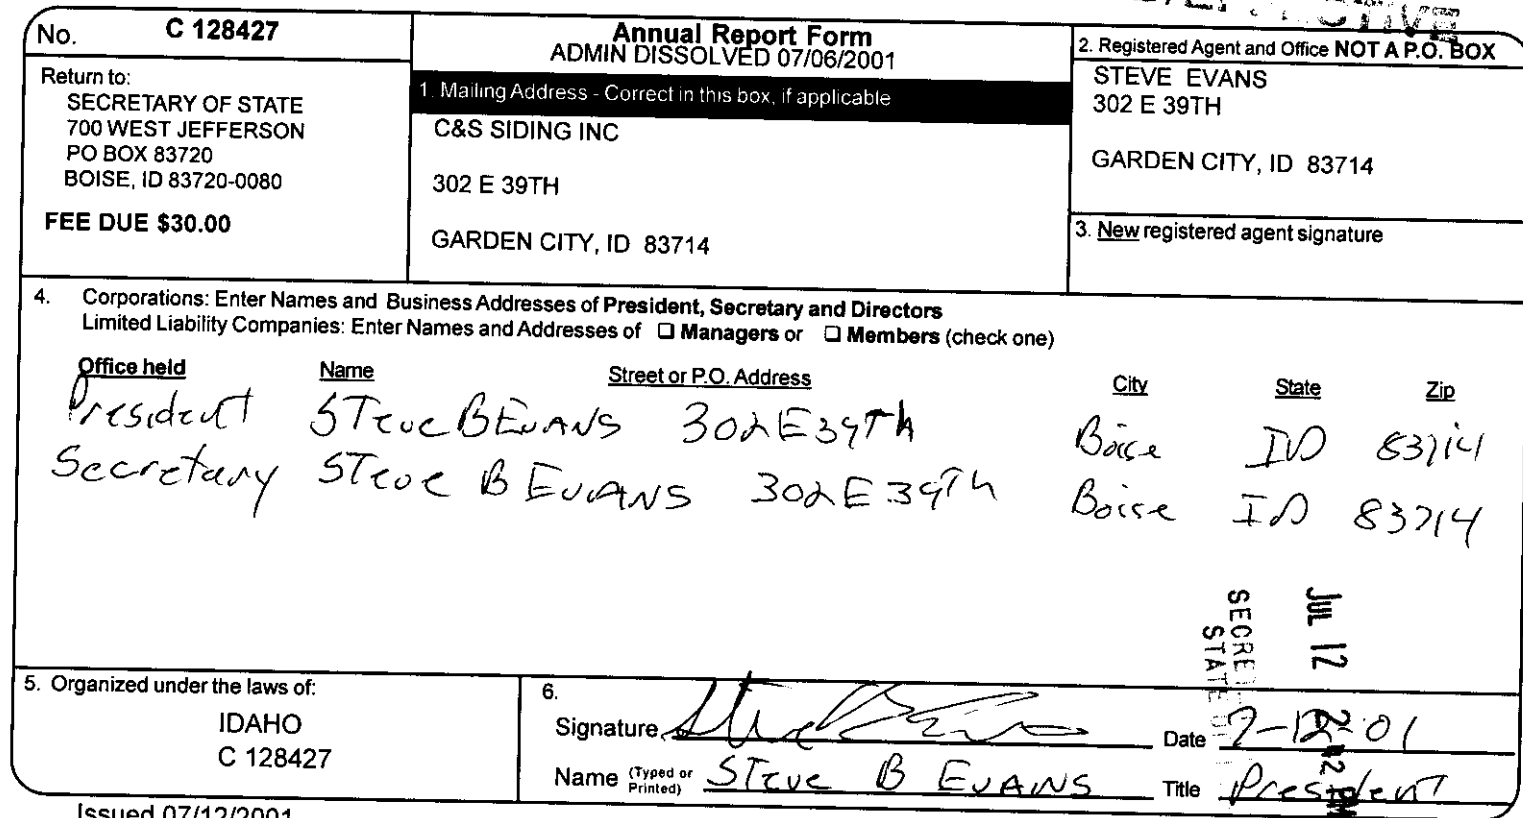 No. C 128427
Return to:
SECRETARY OF STATE
700 WEST JEFFERSON
PO BOX 83720
BOISE, ID 83720-0080
FEE DUE $30.00
Annual Report Form
ADMIN DISSOLVED 07/06/2001
1. Mailing Address - Correct in this box, if applicable
C&S SIDING INC
302 E 39TH
GARDEN CITY, ID 83714
2. Registered Agent and Office NOT A P.O. BOX
STEVE EVANS
302 E 39TH
GARDEN CITY, ID 83714
3. New registered agent signature
4. Corporations: Enter Names and Business Addresses of President, Secretary and Directors
Limited Liability Companies: Enter Names and Addresses of ❑ Managers or ❑ Members (check one)
Office held Name Street or P.O. Address City State Zip
President Steve B Evans 302 E 39Th Boise ID 83714
Secretary Steve B Evans 302 E 39Th Boise ID 83714
JUL 12
SECRE
STATE
5. Organized under the laws of:
IDAHO
C 128427
6.
Signature Date 7-12-01
Name (Typed or Printed) Steve B Evans Title President
Issued 07/12/2001